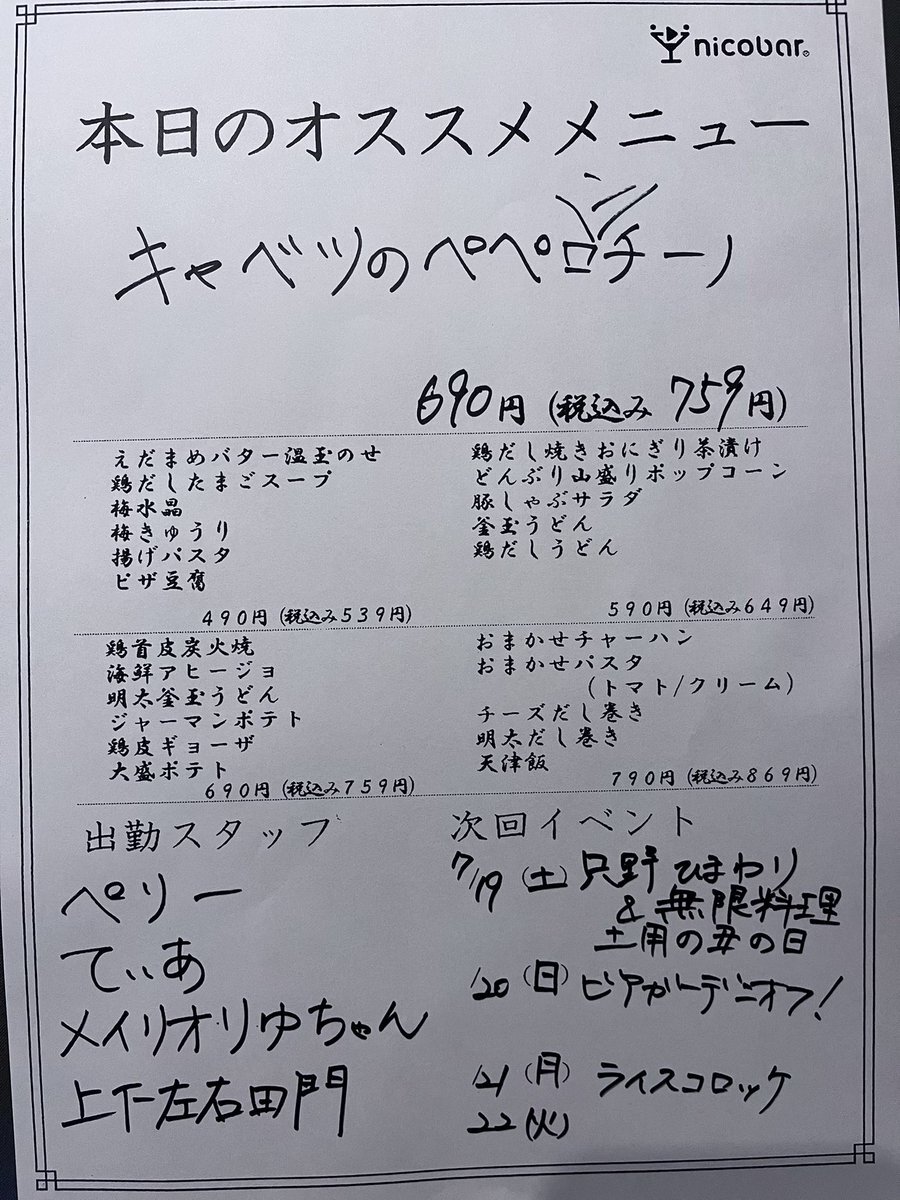 nicobar
本日のオススメメニュー
キャベツのペペロンチーノ
690円 (税込み 759円)
えだまめバター温玉のせ
鶏だしたまごスープ
梅水晶
梅きゅうり
揚げパスタ
ピザ豆腐
490円 (税込み539円)
鶏だし焼きおにぎり茶漬け
どんぶり山盛りポップコーン
豚しゃぶサラダ
釜玉うどん
鶏だしうどん
590円 (税込み649円)
鶏首皮炭火焼
海鮮アヒージョ
明太釜玉うどん
ジャーマンポテト
鶏皮ギョーザ
大盛ポテト
690円 (税込み759円)
おまかせチャーハン
おまかせパスタ
(トマト/クリーム)
チーズだし巻き
明太だし巻き
天津飯
790円 (税込み869円)
出勤スタッフ
ペリー
てぃあ
メイリオリゆちゃん
上下左右田門
次回イベント
7/19 (土) 只野ひまわり
& 無限料理
土用の丑の日
/20 (日) ビアガーデニオフ!
/21 (月) ライスコロッケ
22 (火)